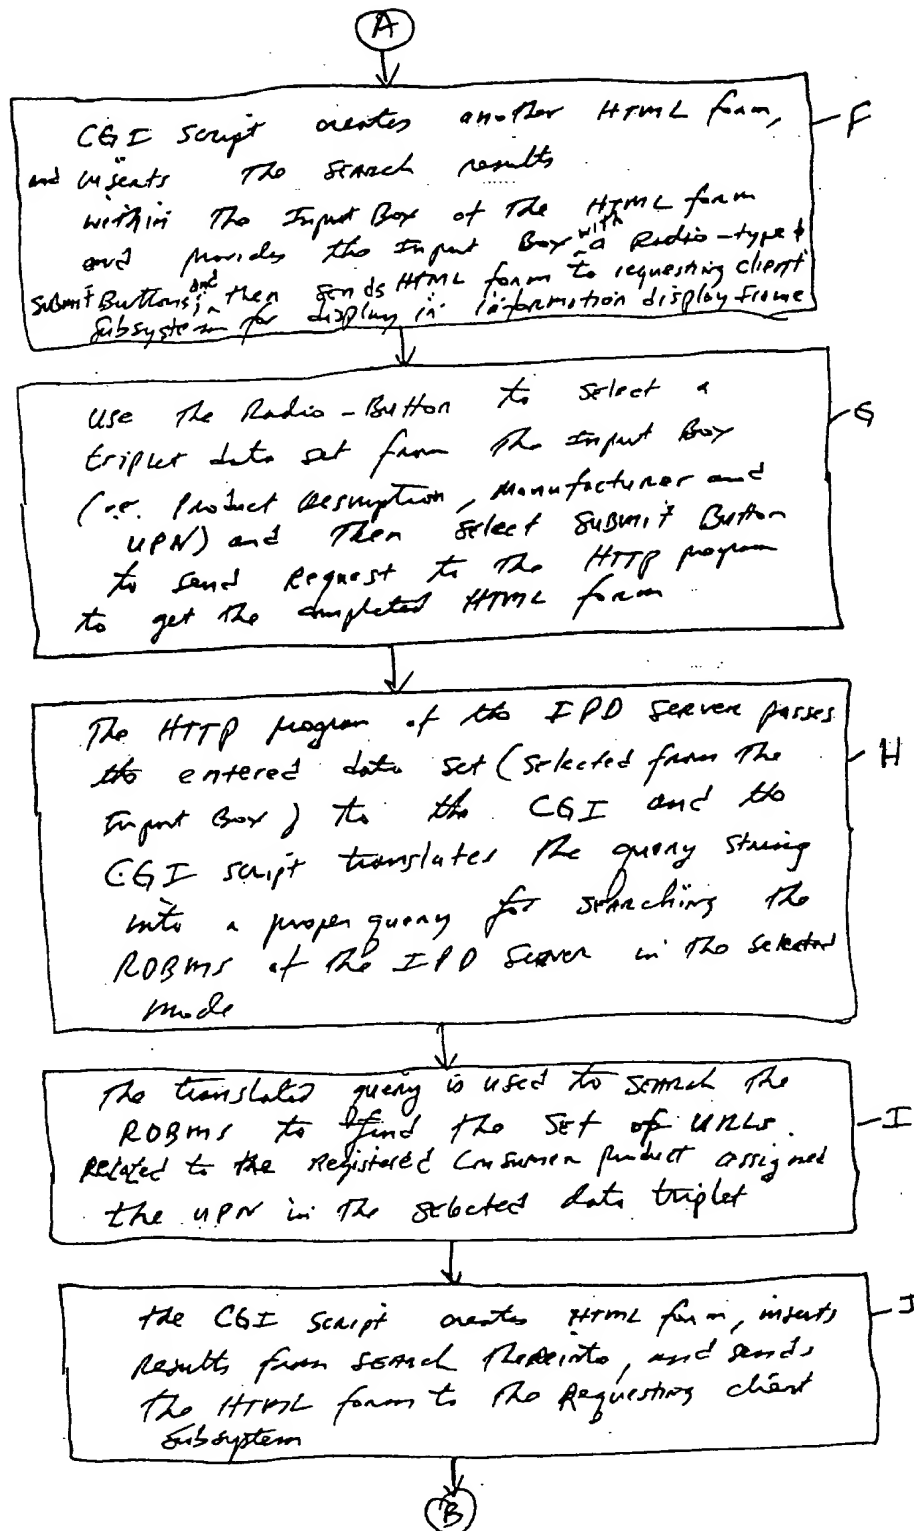 A
CGI Script creates another HTML form, F
and inserts the search results
within the Input Box of the HTML form
and provides the Input Box with a Radio-type &
Submit Buttons; and then sends HTML form to requesting client
subsystem for display in information display frame
use the Radio-Button to select a G
triplet data set from the Input Box
(i.e. Product Description, Manufacturer and
UPN) and then select Submit Button
to send Request to the HTTP program
to get the completed HTML form
The HTTP program of the IPD Server passes
the entered data set (selected from the H
Input Box) to the CGI and the
CGI script translates the query string
into a proper query for searching the
RDBMS of the IPD Server in the selected
mode
The translated query is used to search the
RDBMS to find the set of URLs I
Related to the Registered Consumer product assigned
the UPN in the selected data triplet
the CGI Script creates HTML form, inserts J
Results from search thereinto, and sends
the HTML form to the Requesting client
subsystem
B